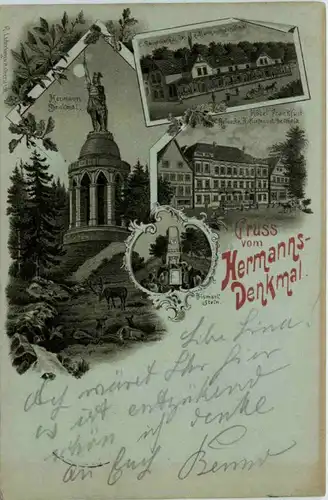 Hermann
Denkmal.
Hotel Frankfurt
Gruss
vom
Hermanns-
Denkmal.
Bismark
Stein.
Liebe Lina!
Ach wäret Ihr hier
es ist entzückend
schön ich denke
an Euch. Benno